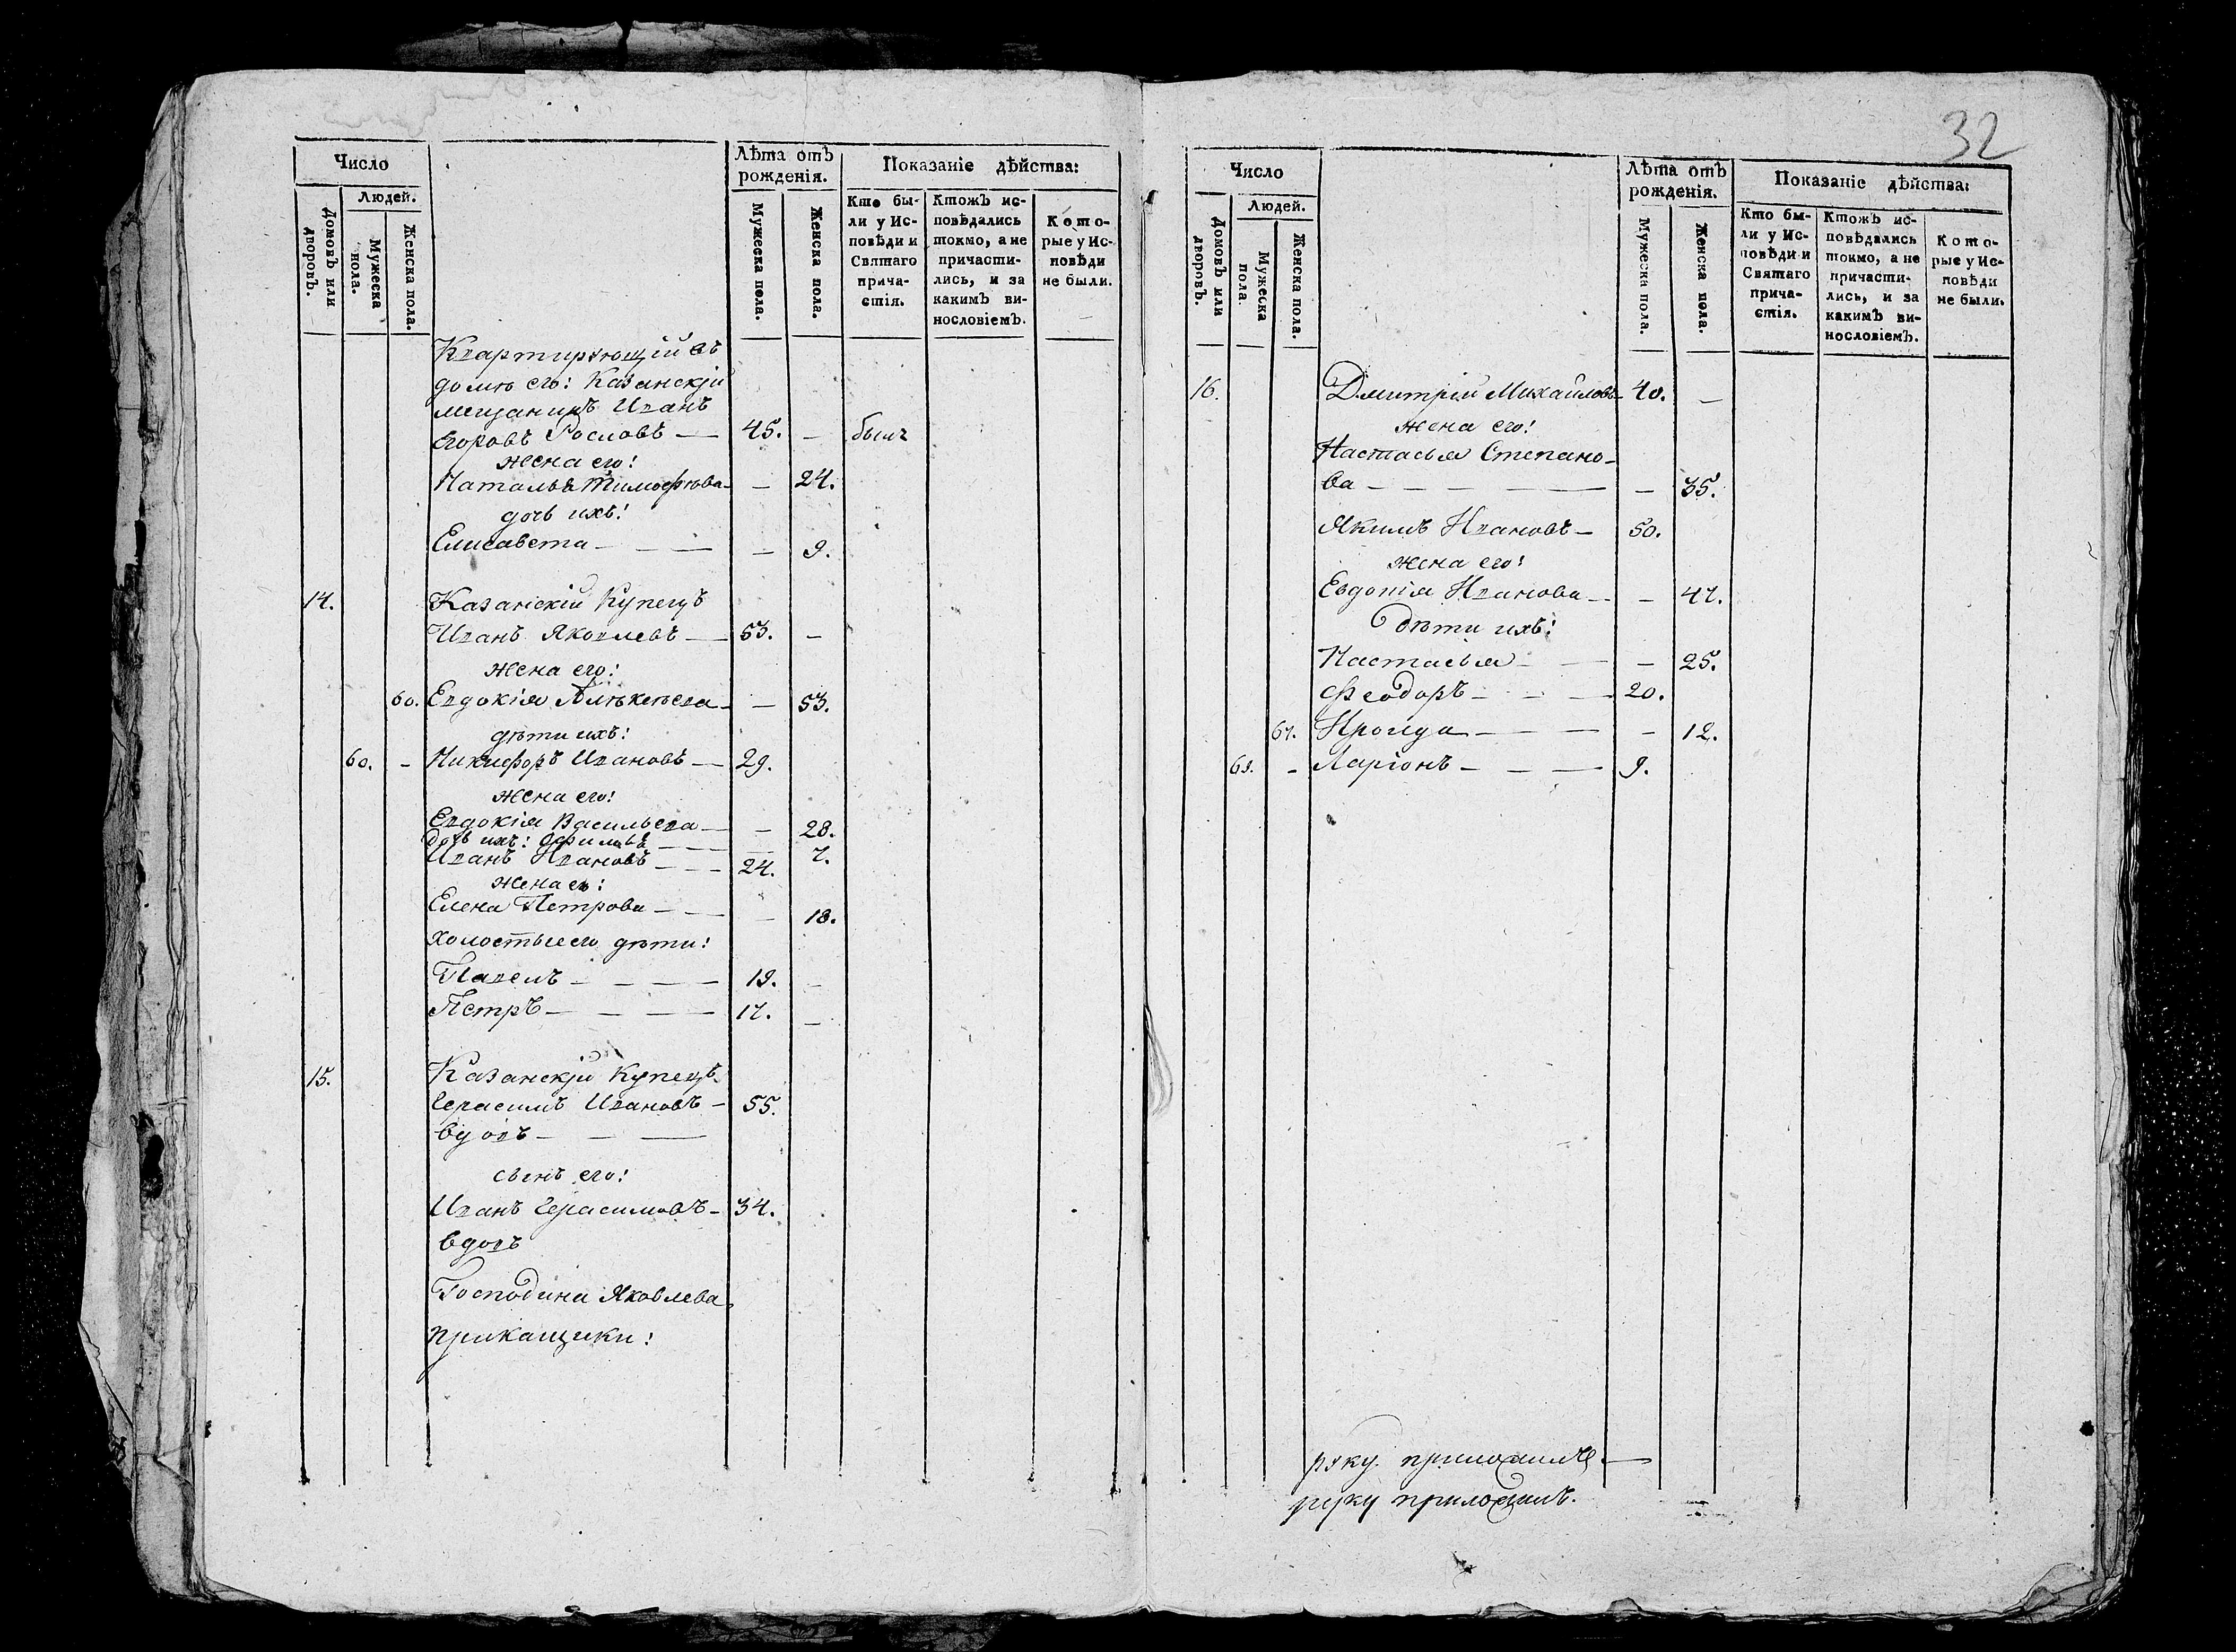 Число
Людей.
Домовъ или дворовъ.
Мужеска пола.
Женска пола.
Лѣта отъ рожденія.
Мужеска пола.
Женска пола.
Показаніе дѣйства:
Кто были у Исповѣди и Святаго причастія.
Ктожъ исповѣдались токмо, а не причастились, и за какимъ винословіемъ.
Которые у Исповѣди не были.
Квартирующій въ
домѣ его: Казанскій
мещанинъ Иванъ
Егоровъ Рословъ — 45. — былъ
жена его:
Наталья Тимофѣева — — 24.
дочь ихъ:
Елисавета — — — — 9.
14. Казанскій Купецъ
Иванъ Яковлевъ — 53. —
жена его:
60. Евдокія — — 53.
дѣти ихъ:
60. — Никифоръ Ивановъ — 29.
жена его:
Евдокія Васильева — — 28.
дочь ихъ: — — — 7.
Иванъ Ивановъ — — — 24.
жена ег:
Елена Петрова — — — 18.
холостые его дѣти:
Павелъ — — — — 19. —
Петръ — — — — 17. —
15. Казанскій Купецъ
Герасимъ Ивановъ — 55.
вдовъ — — —
сынъ его:
Иванъ Герасимовъ — 34.
вдовъ
Господина Яковлева
прикащики:
32
Число
Людей.
Домовъ или дворовъ.
Мужеска пола.
Женска пола.
Лѣта отъ рожденія.
Мужеска пола.
Женска пола.
Показаніе дѣйства:
Кто были у Исповѣди и Святаго причастія.
Ктожъ исповѣдались токмо, а не причастились, и за какимъ винословіемъ.
Которые у Исповѣди не были.
16. Дмитрій Михайловъ — 40. —
жена его:
Настасья Степано-
ва — — — — — 35.
Якимъ Ивановъ — 50.
жена его:
Евдокія Иванова — — — 47.
Дѣти ихъ:
Настасья — — — 25.
Феодоръ — — — 20.
67. Ираида — — — — 12.
— Ларіонъ — — — 9.
руку приложилъ —
руку приложилъ.